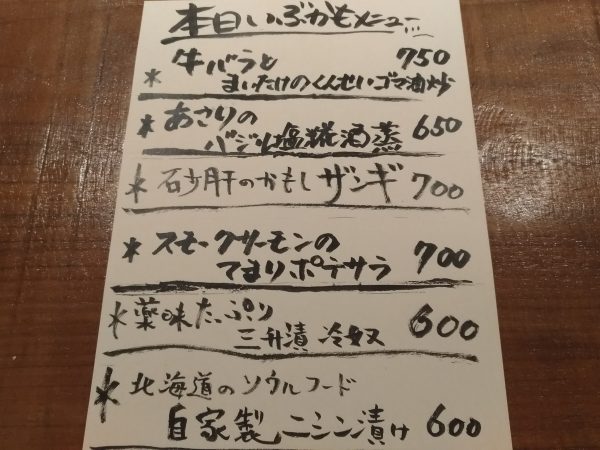 本日いぶかもメニュー
* 牛バラと 750
まいたけのくんせいゴマ油炒
* あさりの 650
バジル塩糀酒蒸
* 石少肝のかもしザンギ 700
* スモークサーモンの
てまりポテサラ 700
* 薬味たっぷり
三升漬 冷奴 600
* 北海道のソウルフード
自家製ニシン漬け 600